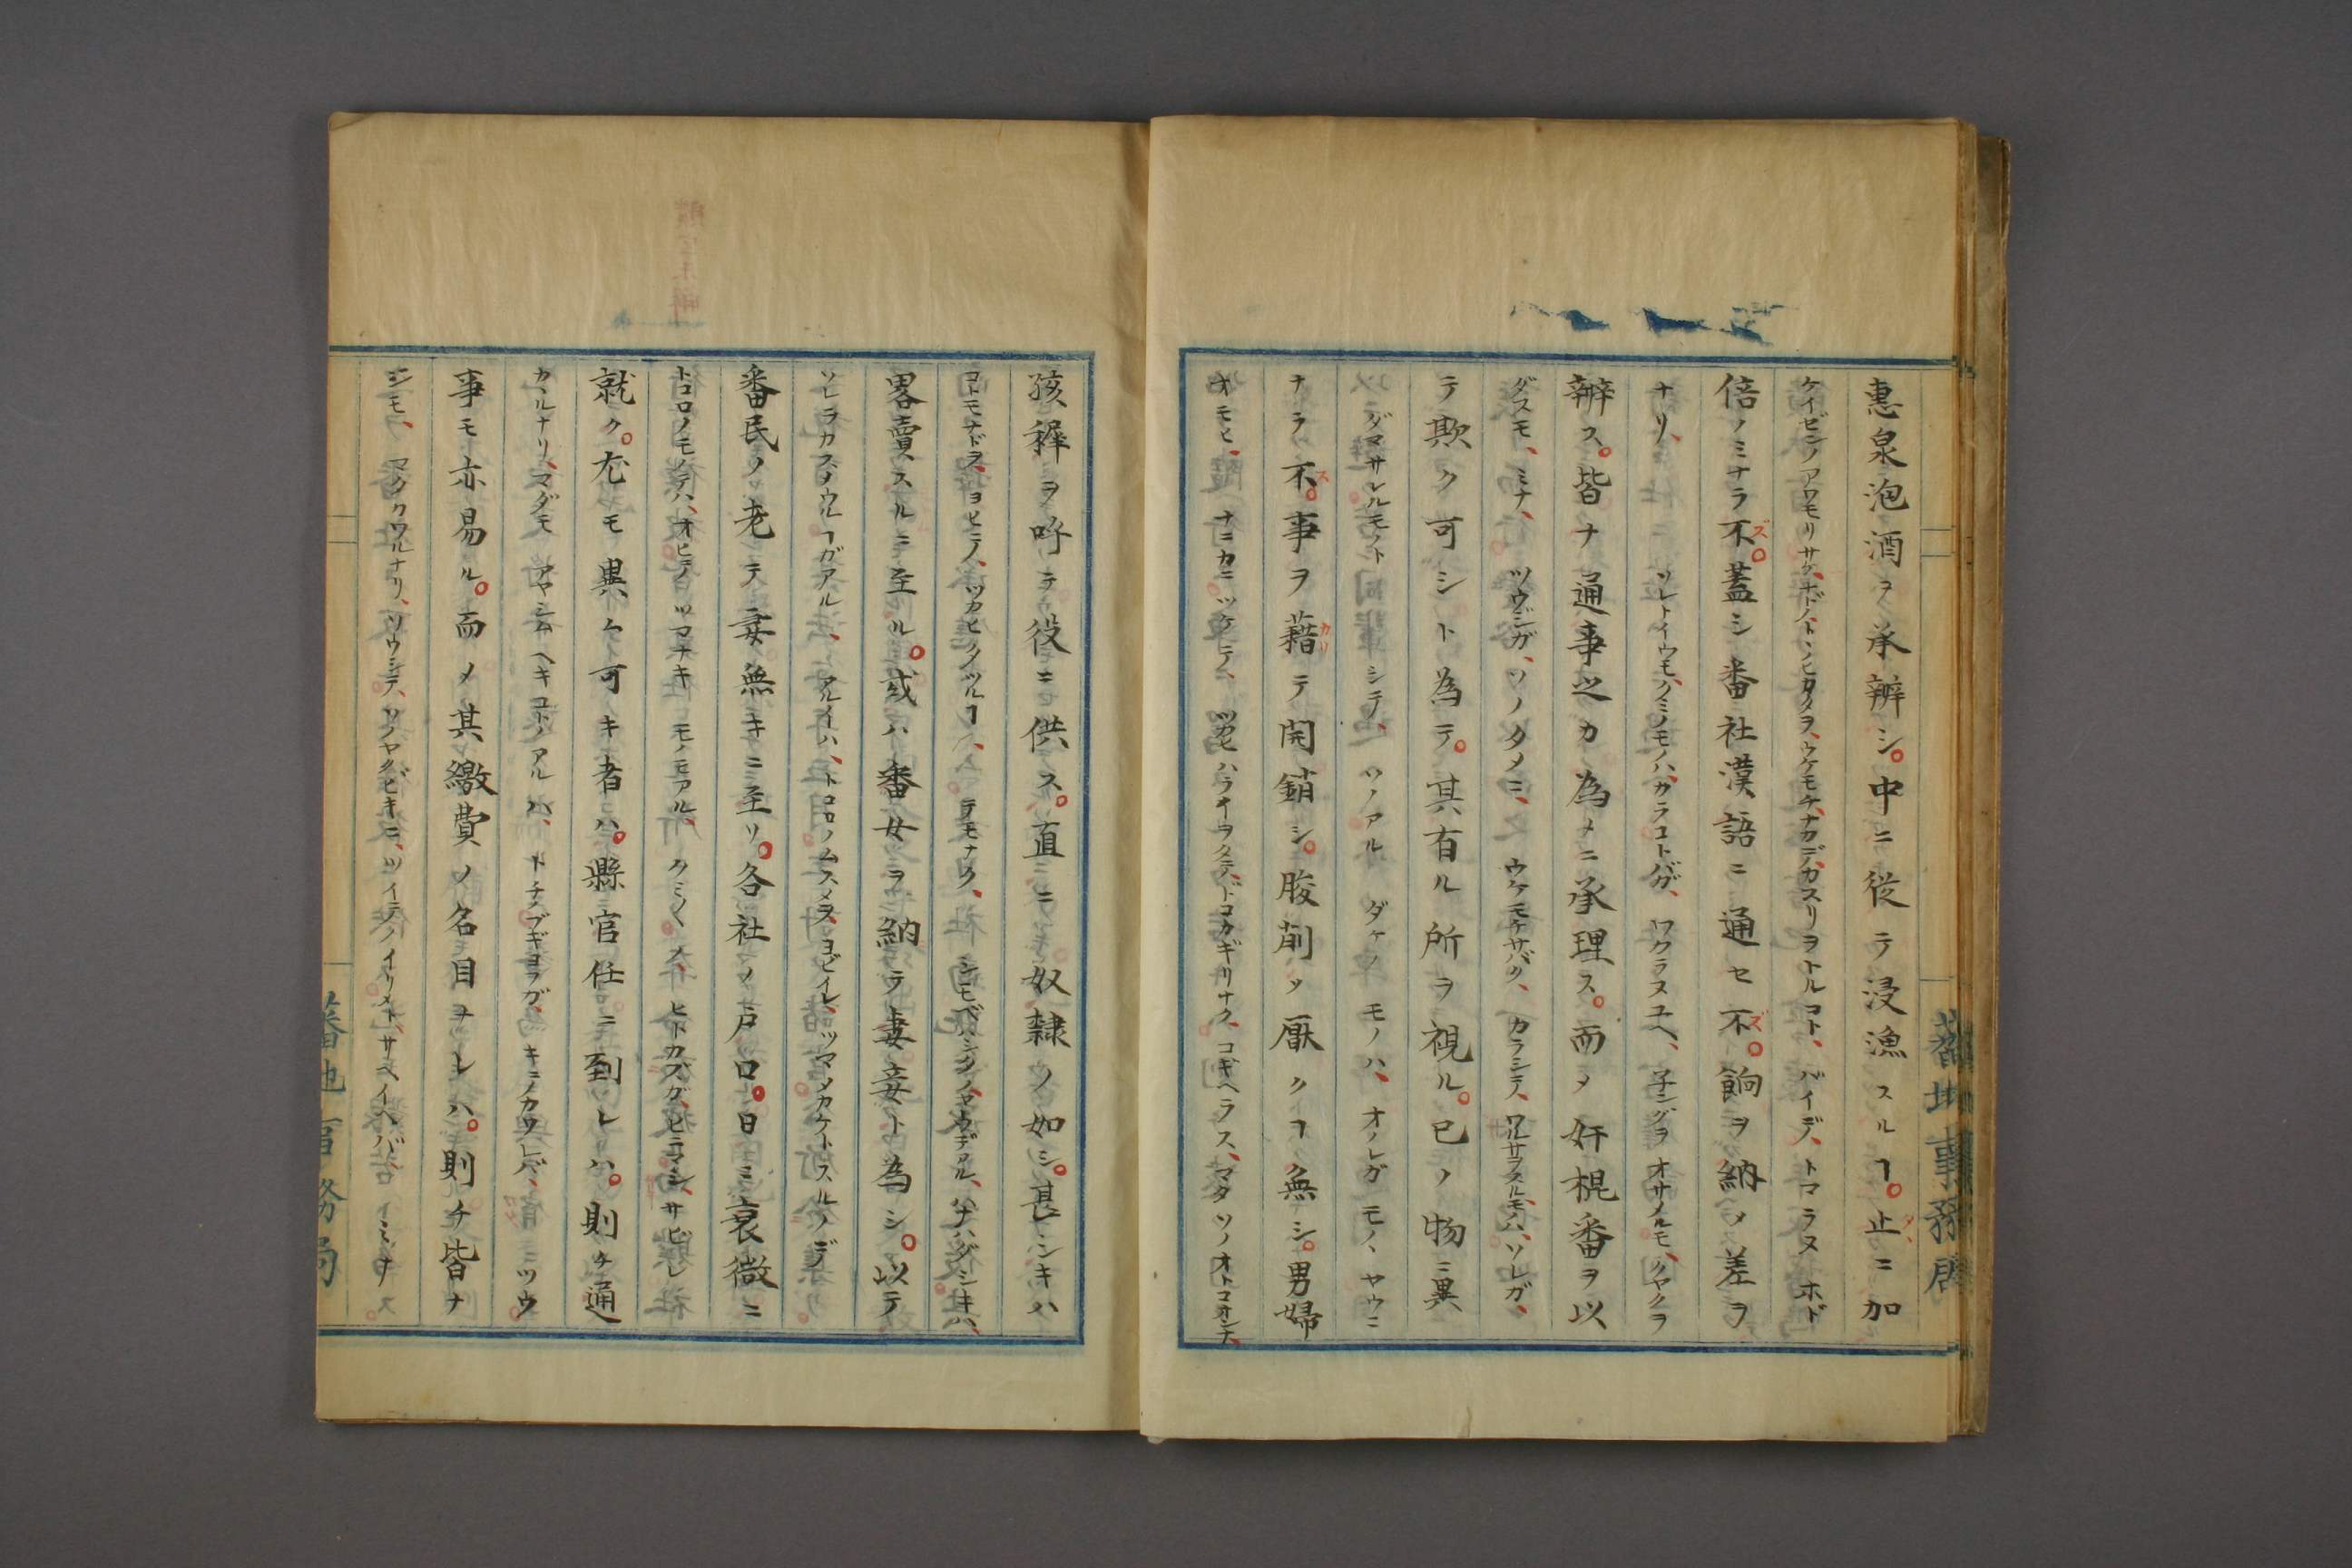 惠泉泡酒ヲ承辨シ。中ニ従テ浸漁スルヿ。止ニ加
ケイゼンノアワモリサケ、ナドノ、トヽノヒカタヲ、ウケモチ、ナカデ、カスリヲトルコト、バイデ、トマラヌホド
倍ノミナラ不ズ。蓋シ番社漢語ニ通セ不ズ。餉ヲ納メ差ヲ
ナリ、ソレトイウモ、クミノモノハ、カラコトバガ、ワカラヌユヘ、子ングヲオサメルモ、クヤクヲ
辨ス。皆ナ通事之カ為メニ承理ス。而メ奸棍番ヲ以
ダスモ、ミナ、ツウジガ、ソノタメニ、ウケモチサバク、カラシテ、ワルサヲスルモノハ、ソレガ、
テ欺ク可シト為テ。其有ル所ヲ視ル。已ノ物ニ異
ダマサレルモノトシテ、ソノアルダケノモノハ、オノレガモノヽヤウニ
ナラ不ス。事ヲ藉カリテ開銷シ。朘削ッ厭クヿ無シ。男婦
オモヒ、ナニカニツケテ、ツカヒハライヲタテ、ドコカギリナク、コギヘラス、マタソノオトコオンナ、
孩穉ヲ呼テ役ニ供ス。直ニニ奴隸ノ如シ。甚シキハ
コトモナドヲ、ヨヒテ、ツカヒタツルヿハ、テモナク、シモベ、ノヤウデアル、ハナハダシキハ、
畧賣スルニ至ル。或ハ番女ヲ納テ妻妾ト為シ。以テ
ソレラカスメウルヿガアル、アルイハ、トコロノムスメヲ、ヨビイレ、ツマメカケトスルノデ
番民ノ老テ妻無キニ至リ。各社ノ戸口。日ミ衰微ニ
トコロノモノデハ、オヒテツマナキモノモアル、クミ〳〵ノ、ヒトカズガ、ヒマシ、サビレ
就ク。尤モ異ム可キ者ハ。縣官任ニ到レハ。則チ通
カヽルナリ、マダモアヤシムヘキコトノアルハ、トチノブギョウガ、キテノカワレバ、ツウ
事モ亦易ル。而メ其繳費ノ名目ヲレハ。則チ皆ナ
ジモ、マタクワルナリ、ソウシテ、ソノヤクビキニ、ツイテノイリメト、サヘイヘバ、ミナ
蕃地事務局